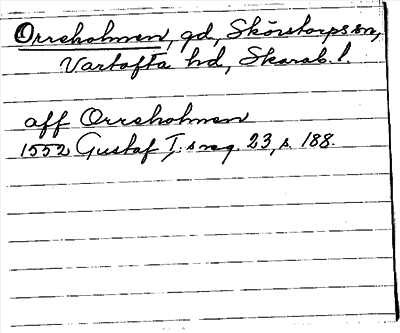 Orreholmen, gd, Skörstorps sn,
Vartofta hd, Skarab. l.
aff Orreholmen
1552 Gustaf I:s reg. 23, s. 188.